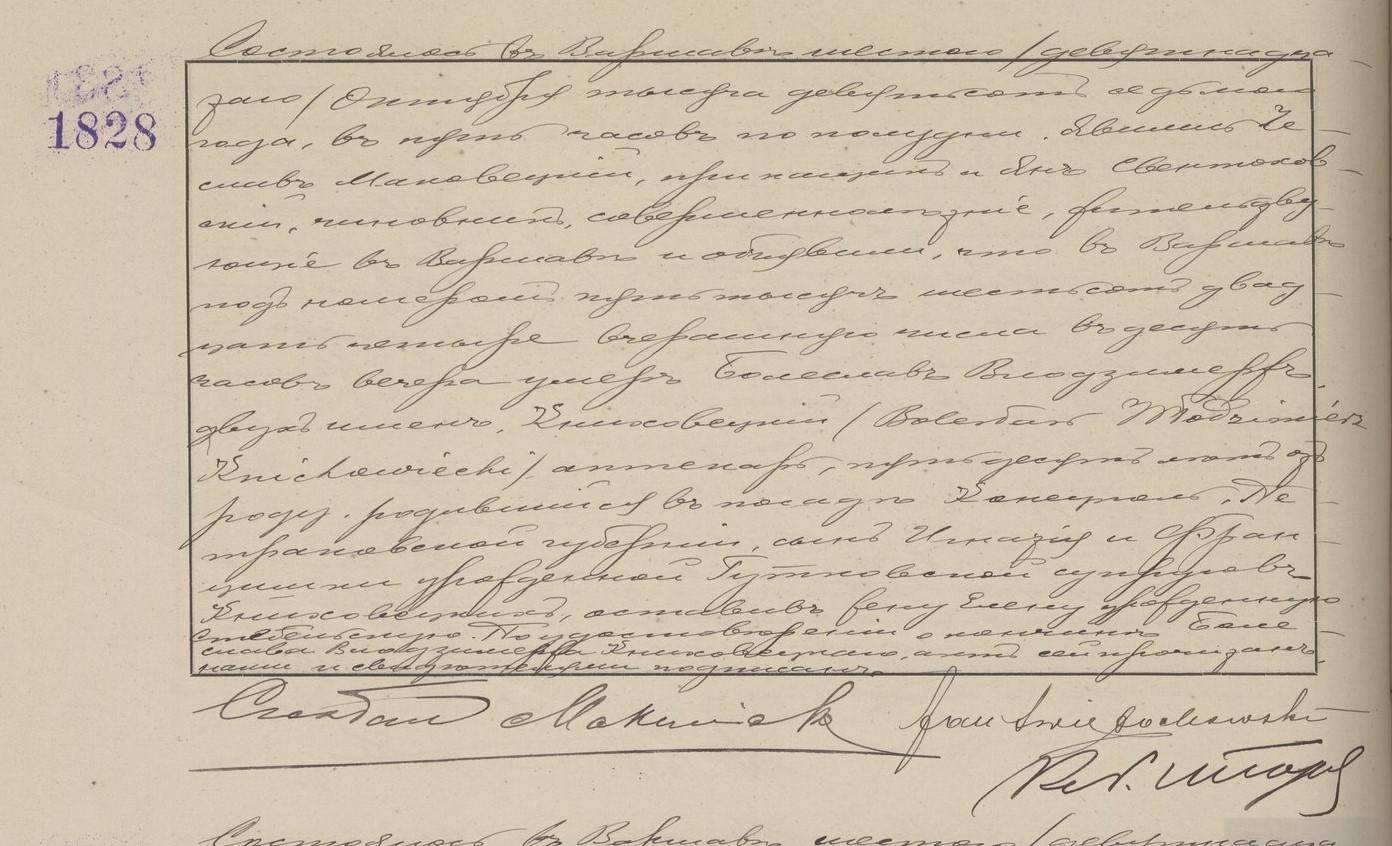 Состоялось въ Варшавѣ шестого /девятнадца
1828
таго/ Октября тысяча девятьсотъ седьмого
года, въ пять часовъ по полудни. Явились Че
славъ Маковецкій, приказчикъ и Янъ Свентохов
скій, чиновникъ, совершеннолѣтніе, жительству
ющіе въ Варшавѣ и объявили, что въ Варшавѣ
подъ номеромъ пять тысячъ шестьсотъ двад
цать четыре вчерашняго числа въ десять
часовъ вечера умеръ Болеславъ Влодзимержъ,
двухъ именъ, Книховецкій /Bolesław Włodzimierz
Knichowiecki/ аптекарь, пятьдесятъ лѣтъ отъ
роду, родившійся въ посадѣ Конецполь, Пе
троковской губерніи, сынъ Игнатія и Фран
цишки урожденной Гутковской супруговъ
Книховецкихъ, оставивъ жену Елену урожденную
По удостовѣреніи о кончинѣ Боле
слава Влодзимержа Книховецкаго, актъ сей прочитанъ,
нами и свидѣтелями подписанъ.
Czesław Jan Świętochowski
Состоялось въ Варшавѣ шестого /девятнадца